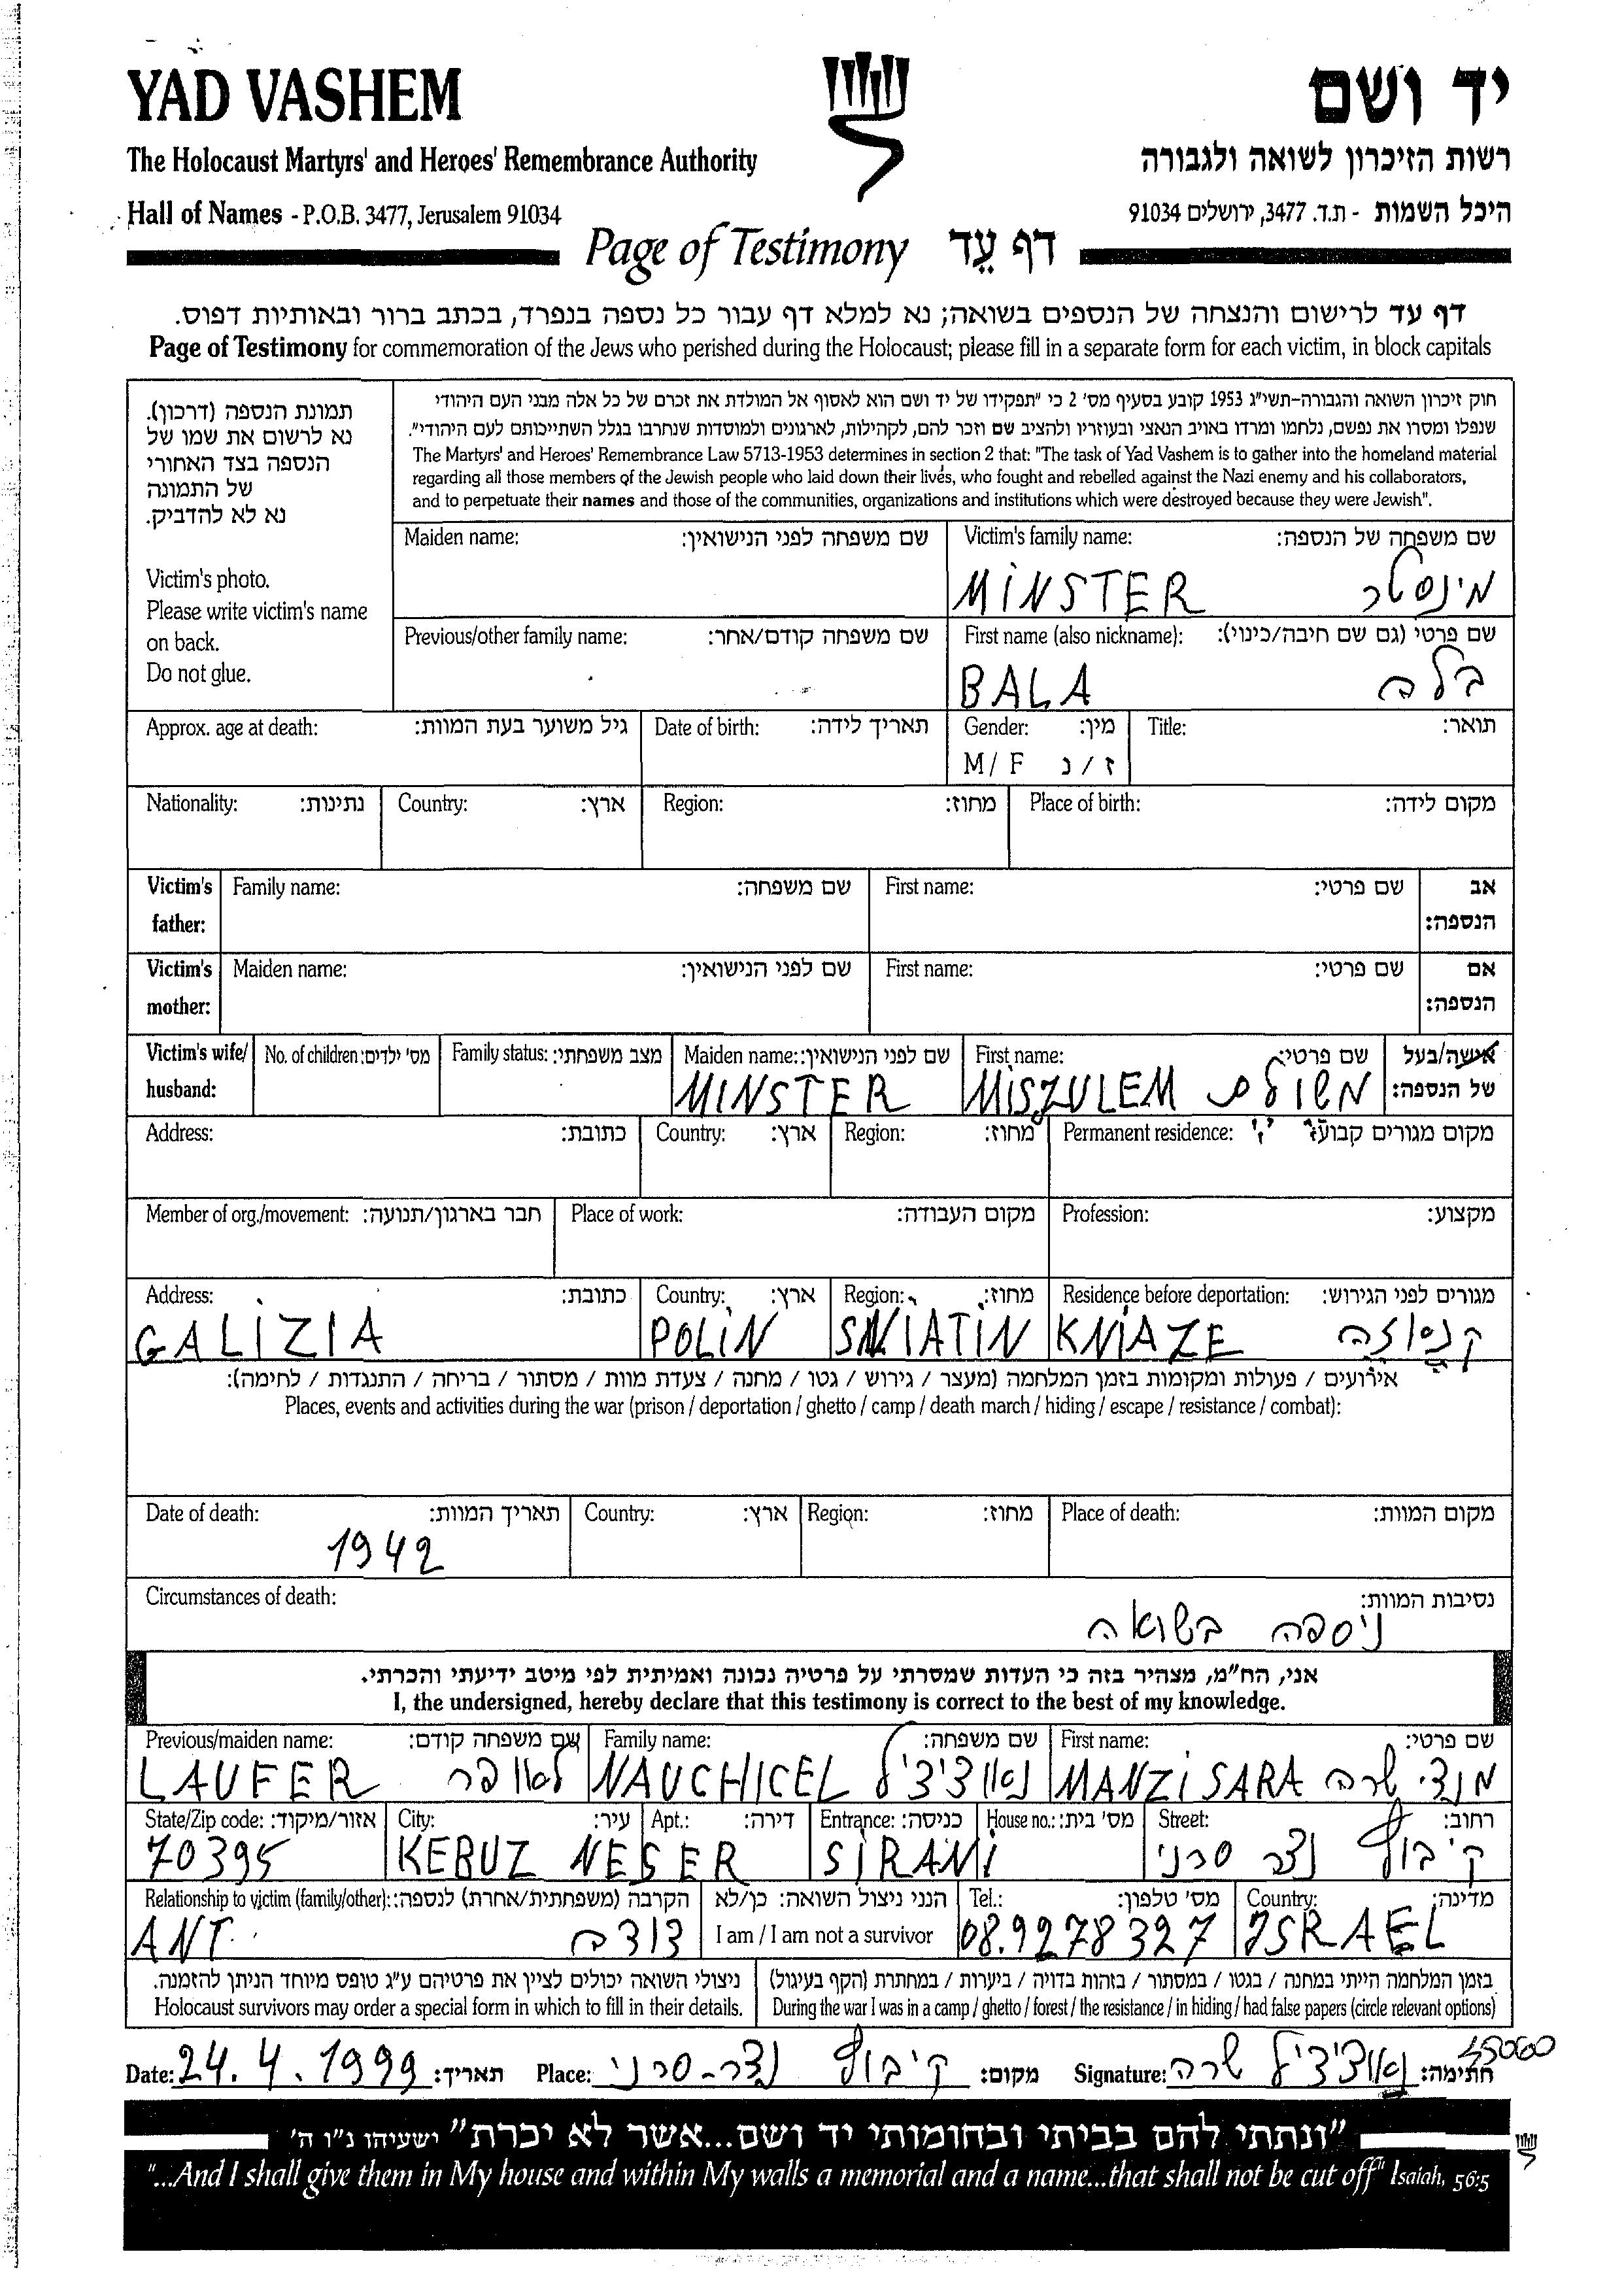 YAD VASHEM
יד ושם
The Holocaust Martyrs' and Heroes' Remembrance Authority
רשות הזיכרון לשואה ולגבורה
Hall of Names - P.O.B. 3477, Jerusalem 91034
היכל השמות - ת.ד. 3477, ירושלים 91034
Page of Testimony דף עֵד
דף עד לרישום והנצחה של הנספים בשואה; נא למלא דף עבור כל נספה בנפרד, בכתב ברור ובאותיות דפוס.
Page of Testimony for commemoration of the Jews who perished during the Holocaust; please fill in a separate form for each victim, in block capitals
תמונת הנספה (דרכון).
נא לרשום את שמו של
הנספה בצד האחורי
של התמונה
נא לא להדביק.
Victim's photo.
Please write victim's name
on back.
Do not glue.
חוק זיכרון השואה והגבורה-תשי"ג 1953 קובע בסעיף מס' 2 כי "תפקידו של יד ושם הוא לאסוף אל המולדת את זכרם של כל אלה מבני העם היהודי
שנפלו ומסרו את נפשם, נלחמו ומרדו באויב הנאצי ובעוזריו ולהציב שם וזכר להם, לקהילות, לארגונים ולמוסדות שנחרבו בגלל השתייכותם לעם היהודי".
The Martyrs' and Heroes' Remembrance Law 5713-1953 determines in section 2 that: "The task of Yad Vashem is to gather into the homeland material
regarding all those members of the Jewish people who laid down their lives, who fought and rebelled against the Nazi enemy and his collaborators,
and to perpetuate their names and those of the communities, organizations and institutions which were destroyed because they were Jewish".
Maiden name: שם משפחה לפני הנישואין:
Victim's family name: שם משפחה של הנספה:
MINSTER מינסטר
Previous/other family name: שם משפחה קודם/אחר:
First name (also nickname): שם פרטי (גם שם חיבה/כינוי):
BALA בלה
Approx. age at death: גיל משוער בעת המוות:
Date of birth: תאריך לידה:
Gender: מין:
M/F ז/נ
Title: תואר:
Nationality: נתינות:
Country: ארץ:
Region: מחוז:
Place of birth: מקום לידה:
Victim's father:
Family name: שם משפחה:
First name: שם פרטי:
אב הנספה:
Victim's mother:
Maiden name: שם לפני הנישואין:
First name: שם פרטי:
אם הנספה:
Victim's wife/ husband:
No. of children: מס' ילדים:
Family status: מצב משפחתי:
Maiden name: שם לפני הנישואין:
MINSTER
First name: שם פרטי:
MISZULEM משולם
אישה/בעל של הנספה:
Address: כתובת:
Country: ארץ:
Region: מחוז:
Permanent residence: מקום מגורים קבוע:
Member of org./movement: חבר בארגון/תנועה:
Place of work: מקום העבודה:
Profession: מקצוע:
Address: כתובת:
GALIZIA
Country: ארץ:
POLIN
Region: מחוז:
SNIATIN
Residence before deportation: מגורים לפני הגירוש:
KNIAZE
אירועים / פעולות ומקומות בזמן המלחמה (מעצר / גירוש / גטו / מחנה / צעדת מוות / מסתור / בריחה / התנגדות / לחימה):
Places, events and activities during the war (prison / deportation / ghetto / camp / death march / hiding / escape / resistance / combat):
Date of death: תאריך המוות:
1942
Country: ארץ:
Region: מחוז:
Place of death: מקום המוות:
Circumstances of death: נסיבות המוות:
ניספה בשואה
אני, הח"מ, מצהיר בזה כי העדות שמסרתי על פרטיה נכונה ואמיתית לפי מיטב ידיעתי והכרתי.
I, the undersigned, hereby declare that this testimony is correct to the best of my knowledge.
Previous/maiden name: שם משפחה קודם:
LAUFER לאופר
Family name: שם משפחה:
NAUCHICEL נאוציציל
First name: שם פרטי:
MANZI SARA מנצי שרה
State/Zip code: אזור/מיקוד:
70395
City: עיר:
Apt.: דירה:
KEBUZ NESER
Entrance: כניסה:
House no.: מס' בית:
SIRANI
Street: רחוב:
קיבוץ נצר סרני
Relationship to victim (family/other): הקרבה (משפחתית/אחרת) לנספה:
ANT דודה
הנני ניצול השואה: כן/לא
I am / I am not a survivor
Tel.: מס' טלפון:
08.9278327
Country: מדינה:
ISRAEL
ניצולי השואה יכולים לציין את פרטיהם ע"ג טופס מיוחד הניתן להזמנה.
Holocaust survivors may order a special form in which to fill in their details.
בזמן המלחמה הייתי במחנה / בגטו / במסתור / בזהות בדויה / ביערות / במחתרת (הקף בעיגול)
During the war I was in a camp / ghetto / forest / the resistance / in hiding / had false papers (circle relevant options)
Date: 24.4.1999 תאריך:
Place: קיבוץ נצר-סרני מקום:
Signature: נאוציציל שרה חתימה:
"ונתתי להם בביתי ובחומותי יד ושם...אשר לא יכרת" ישעיהו נ"ו ה'
"...And I shall give them in My house and within My walls a memorial and a name...that shall not be cut off" Isaiah, 56:5